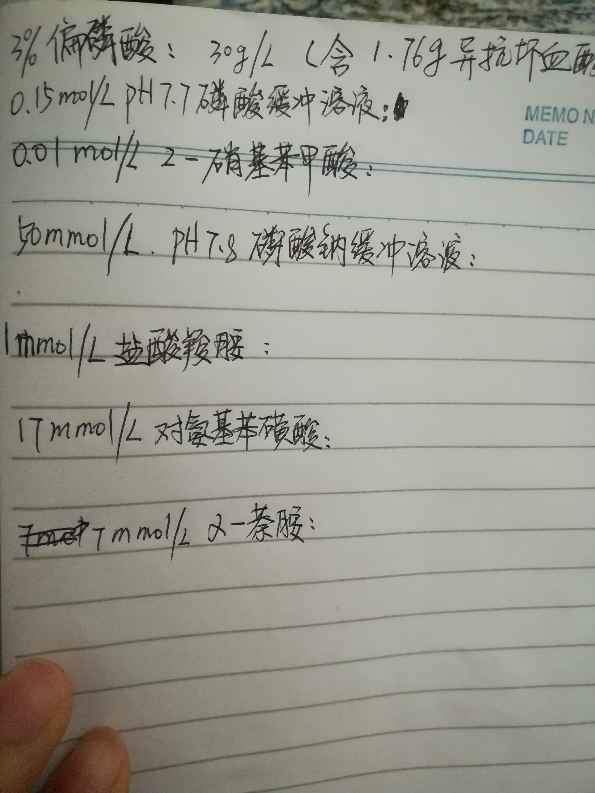 3% 偏磷酸： 30g/L （含 1.76g 异抗坏血酸
0.15mol/L pH7.7 磷酸缓冲溶液：
MEMO N
DATE
0.01 mol/L 2-硝基苯甲酸：
50mmol/L. pH7.8 磷酸钠缓冲溶液：
1mmol/L 盐酸羟胺：
17mmol/L 对氨基苯磺酸：
7mmol/L α-萘胺：